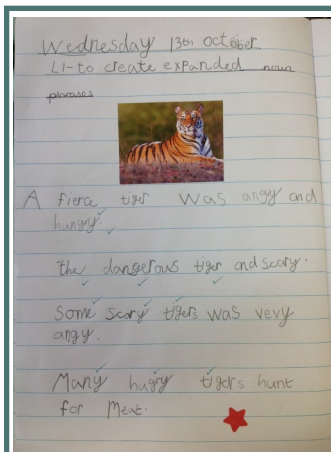 Wednesday 13th October
LI-to create expanded noun
phrases
A fierce tiger was angry and
hungry.
the dangerous tiger and scary.
Some scary tigers was very
angy.
Many hugry tigers hunt
for Meat.